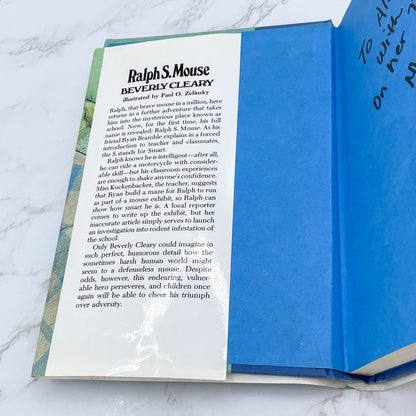 Ralph S. Mouse
BEVERLY CLEARY
illustrated by Paul O. Zelinsky
Ralph, that brave mouse in a million, here
returns in a further adventure that takes
him into the mysterious place known as
school. Now, for the first time, his full
name is revealed: Ralph S. Mouse. As his
friend Ryan Bramble explains in a forced
introduction to teacher and classmates,
the S stands for Smart.
Ralph knows he is intelligent—after all,
he can ride a motorcycle with consider-
able skill—but his classroom experiences
are enough to shake anyone's confidence.
Miss Kuckenbacker, the teacher, suggests
that Ryan build a maze for Ralph to run
as part of a mouse exhibit, so Ralph can
show how smart he is. A local reporter
comes to write up the exhibit, but her
inaccurate article simply serves to launch
an investigation into rodent infestation of
the school.
Only Beverly Cleary could imagine in
such perfect, humorous detail how the
sometimes harsh human world might
seem to a defenseless mouse. Despite
odds, however, this endearing, vulner-
able hero perseveres, and children once
again will be able to cheer his triumph
over adversity.
To Al
With
on her
M